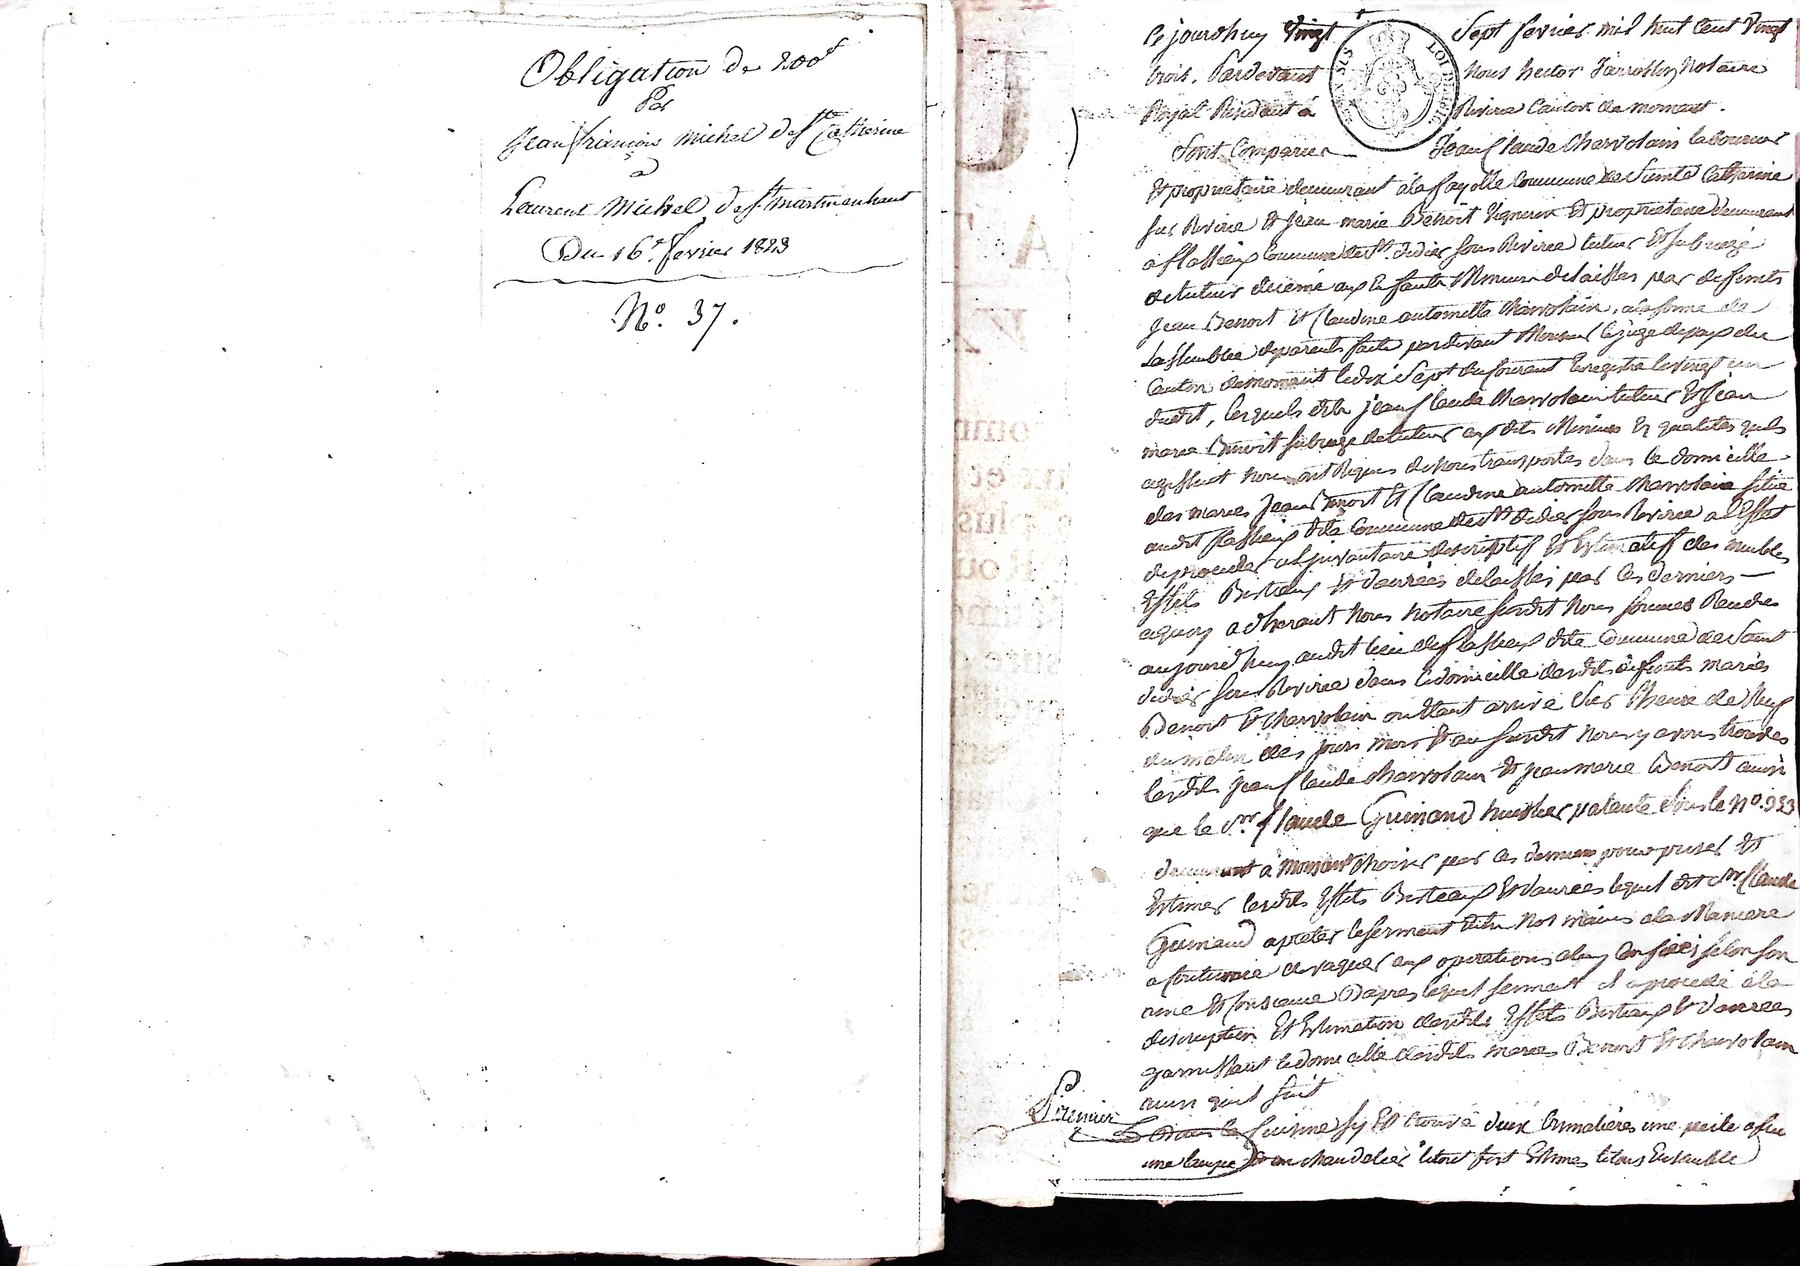 Obligation de 200f
Par
Jean françois Michel de Ste Catherine
a
Laurent Michel de St martin en haut
Du 16e fevrier 1823
No. 37.
Ce jourdhuy vingt Sept fevrier mil huit Cent Vingt
trois. Pardevant Nous hector Notaire
Royal Residant à Riviree Canton de mornant.
Sont Comparus Jean Claude Charvolain laboureur
Et proprietaire demeurant a la fayolle Commune de Sainte Catherine
sur Riviree Et Jean marie Benoit Vigneron Et proprietaire demeurant
a flassieux Commune de St. didier sous Riviree tuteur Et subrogé
detuteur décerné aux Enfants Mineurs delaissés par defunts
Jean Benoit Et Claudine antoinette Charvolain, a la forme de
Lassemblée deparents faite pardevant Monsieur le juge depaix du
Canton demornant le dix Sept du Courant Enregistré le vingt un
dudit, lesquels dits jean Claude Charvolain tuteur Et Jean
marie Benoit subrogé detuteur aux dits Mineurs En qualités quils
agissent Nous ont Requis de Nous transporter dans le domicille
des mariés Jean Benoit Et Claudine antoinette Charvolain situé
audit flassieux dite Commune de St didier sous Riviree a l'Effet
de proceder a linvantaire descriptif Et Estimatif des meubles
Effets Bestiaux Et danrées delaissés par les derniers
aquoy adherant Nous Notaire susdit Nous sommes Rendus
aujourd'huy audit lieu de flassieux dite Commune de Saint
didier sous Riviree dans le domicille desdits défunts mariés
Benoit Et Charvolain ou Etant arrivé sur lheure de Neuf
du matin des jour mois Et an susdit Nous y avons trouvés
lesdits jean Claude Charvolain Et jean marie Benoit ainsi
que le Sr. Claude Guinand huissier patenté sous le No. 933
demeurant a Mornant Choisis par ces derniers pour priser Et
Estimer lesdits Effets Bestiaux Et danrées lequel dit Sr. Claude
Guinand a preter le serment Nos mains a la Maniere
a Coutumée de vaquer aux operations a luy Confiées selon son
ame Et Consciance Dapres lequel serment il a procédé a la
description Et Estimation desdits Effets Bestiaux Et danrées
garnissant le domicille desdits mariés Benoit Et Charvolain
ainsi quil suit
Premier
Dans la Cuisine sy Est trouvé deux Crimalières une poele a feu
une lampe Et un chandelier letout fort Estimés letous Ensemble